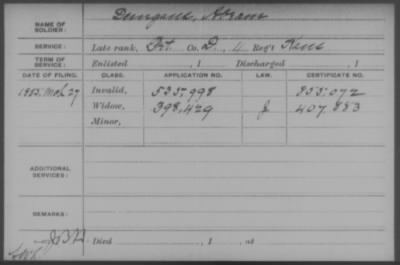 NAME OF SOLDIER: Dungans, Abram
SERVICE: Late rank, Pvt Co. D, 4 Reg't Kans
TERM OF SERVICE: Enlisted , 1 Discharged , 1
DATE OF FILING. CLASS. APPLICATION NO. LAW. CERTIFICATE NO.
1885 Mch 27 Invalid, 535,998 355,072
Widow, 398,429 J 407,883
Minor,
ADDITIONAL SERVICES:
REMARKS:
Died , 1 , at